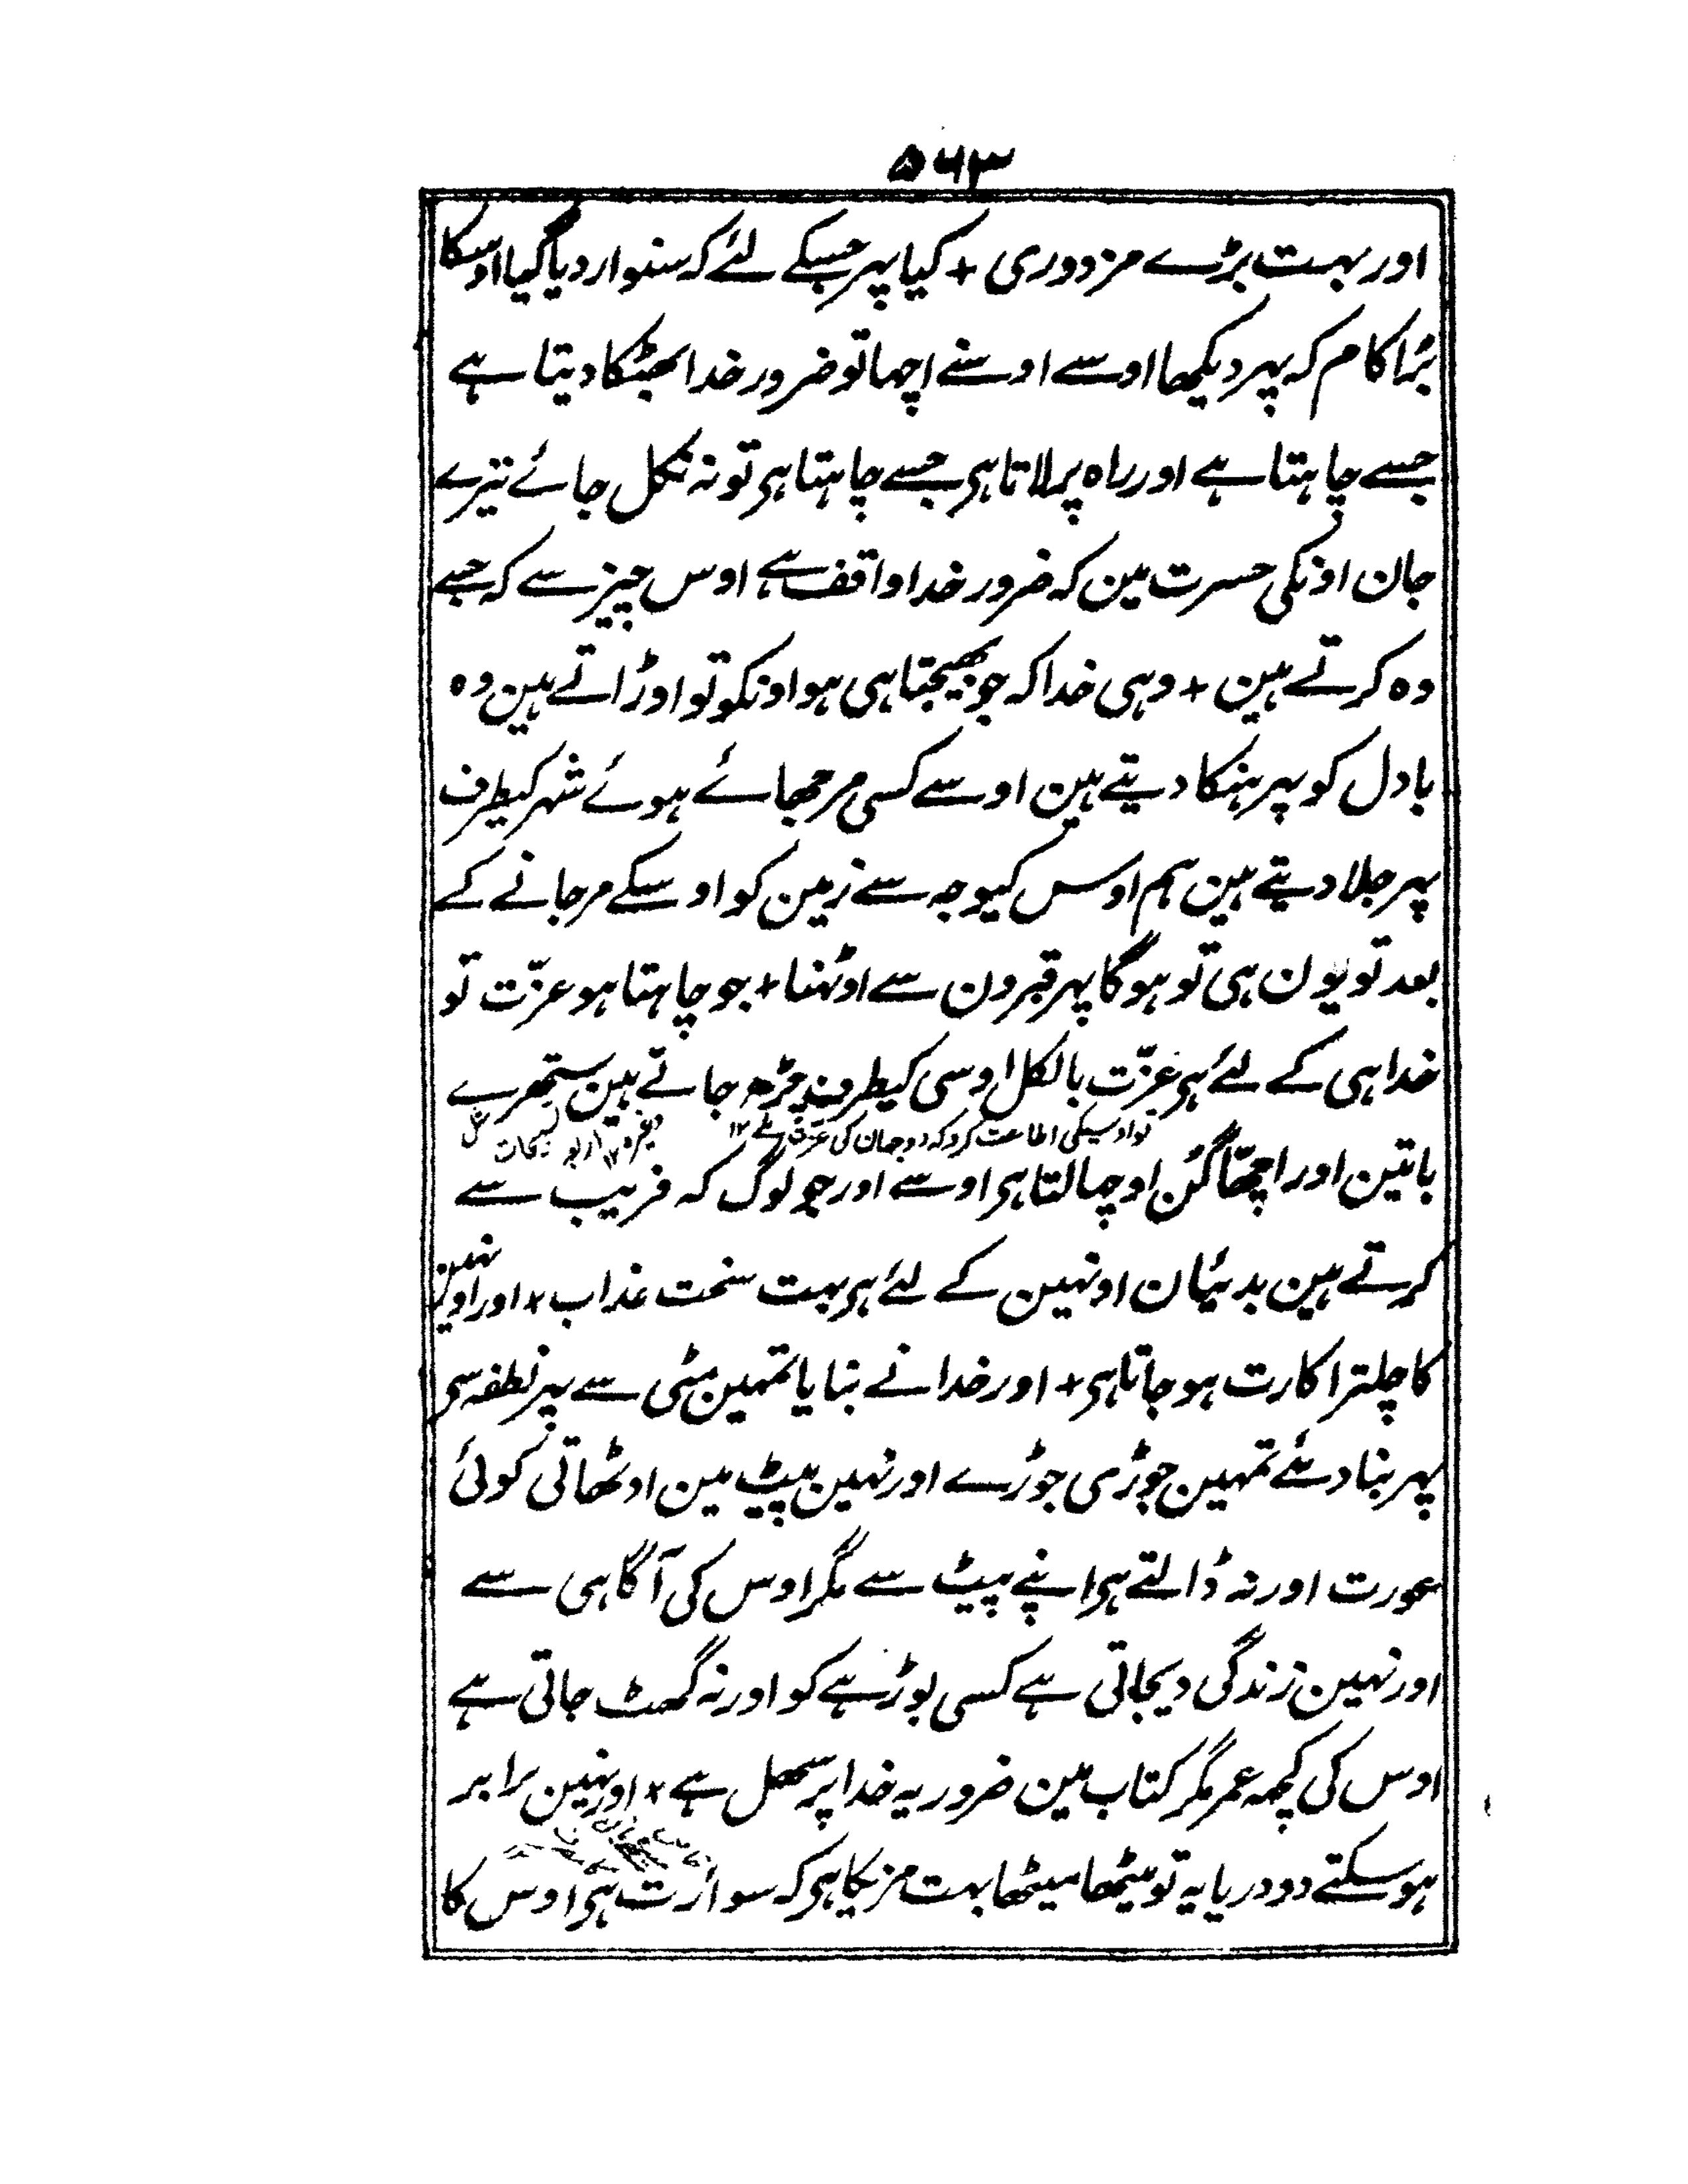 ۵۶۳
اور بہت بڑے مزدوری + کیا پہر جسکے لئے کہ سنوار دیا گیا اوسکا
بڑا کام کہ پہر دیکھا اوسے اوسنے اچھا تو ضرور خدا بھٹکا دیتا ہے
جسے چاہتا ہے اور راہ پر لاتا ہی جسے چاہتا ہی تو نہ نکل جائے تیرے
جان اونکی حسرت مین کہ ضرور خدا واقف ہے اوس چیز سے کہ جسے
وہ کرتے ہین + وہی خدا کہ جو بھیجتا ہی ہوا ونکو تو اوڑاتے ہین وہ
بادل کو پہر ہنکا دیتے ہین اوسے کسی مرجھائے ہوئے شہر کیطرف
پہر جلا دیتے ہین ہم اوس کیوجہ سے زمین کو اوسکے مر جانے کے
بعد تو یون ہی تو ہوگا پہر قبرون سے اوٹہنا + جو چاہتا ہو عزّت تو
خدا ہی کے لئے ہی عزّت بالکل اوسی کیطرف چڑھ جاتے ہین ستھرے
تو اوسیکی اطاعت کرو کہ دو جہان کی عزت ملے ۱۲
باتین اور اچھّا گُن اوچھالتا ہی اوسے اور جو لوگ کہ فریب سے
کرتے ہین بدئیان اونہین کے لئے ہی بہت سخت عذاب + اور اونہین
کا چلتر اکارت ہو جاتا ہی + اور خدا نے بنایا تمہین مٹی سے پہر نطفہ سی
پہر بنا دئے تمہین جوڑی جوڑے اور نہین پیٹ مین اوٹھاتی کوئی
عورت اور نہ ڈالتے ہی اپنے پیٹ سے مگر اوس کی آگاہی سے
اور نہین زندگی دیجاتی ہے کسی بوڑہے کو اور نہ گھٹ جاتی ہے
اوس کی کچھ عمر مگر کتاب مین ضرور یہ خدا پر سہل ہے + اور نہین برابر
ہو سکتے دو دریا یہ تو میٹھا میٹھا بہت مزیکا ہی کہ سوارت ہی اوس کا